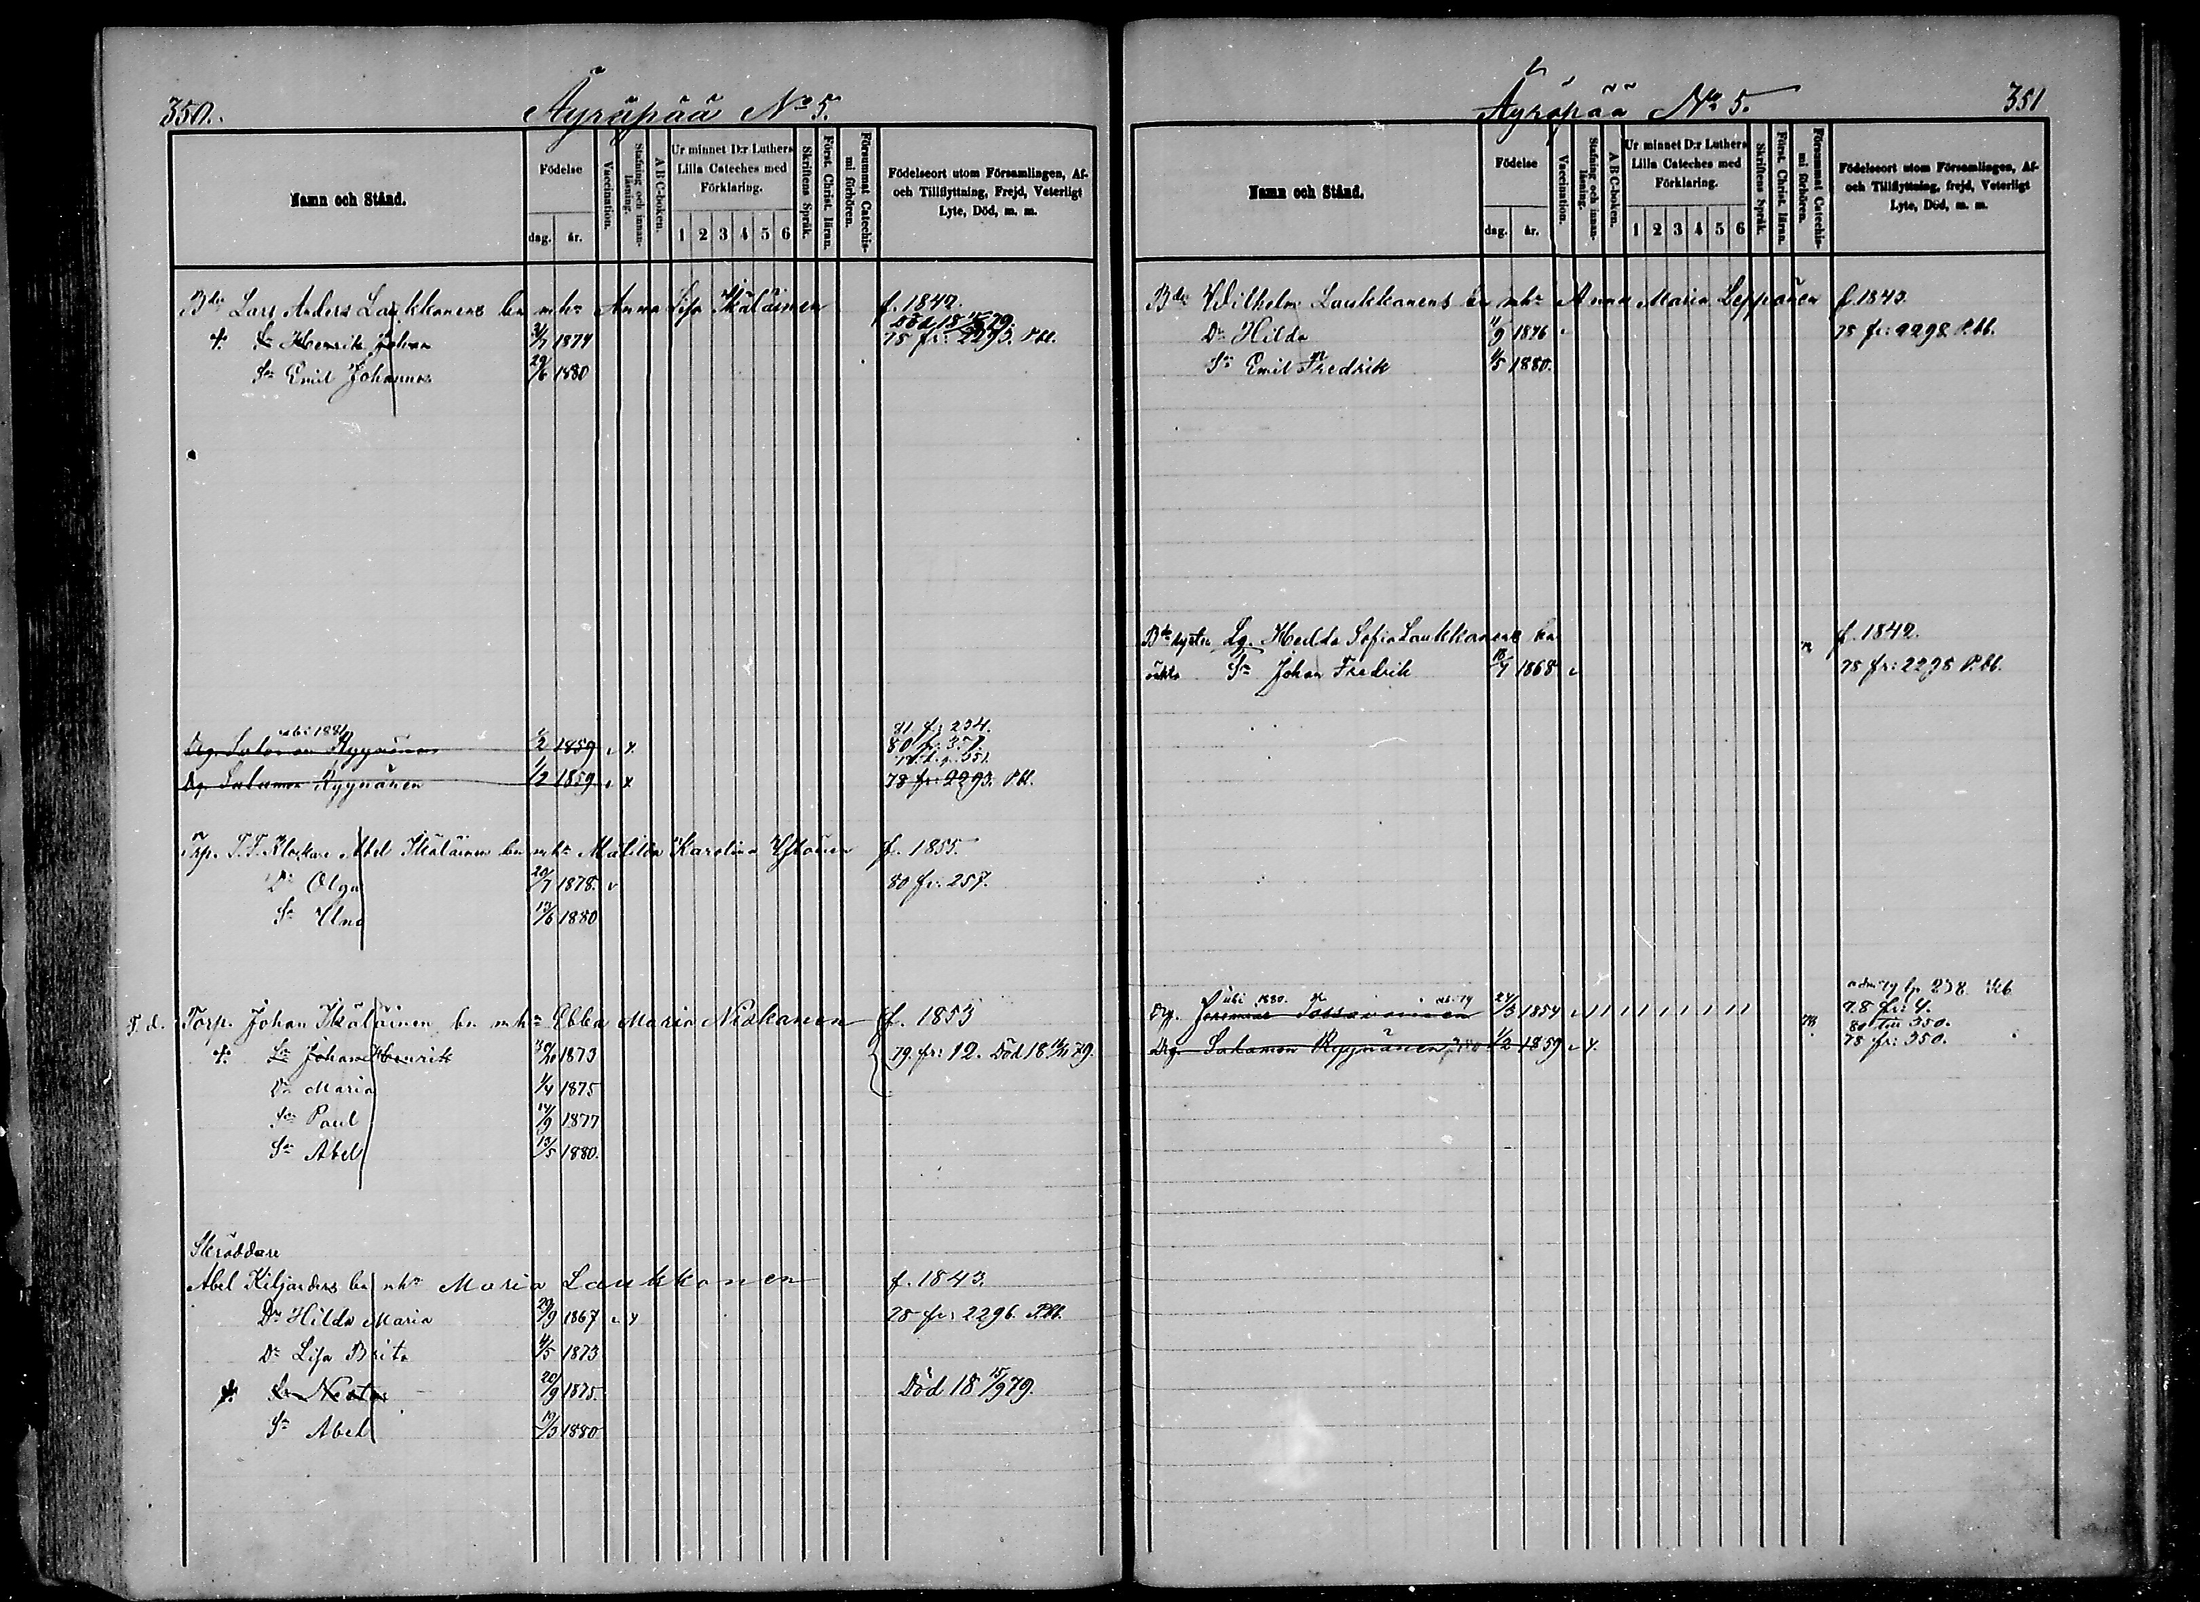 350.
Äyräpää No 5.
Namn och Stånd.
Födelse
dag.
år.
Vaccination.
Stafning och innan-läsning.
A B C-boken.
Ur minnet D:r Luthers Lilla Cateches med Förklaring.
1 2 3 4 5 6
Skriftens Språk.
Först. Christ. läran.
Försummat Catechis-mi förhören.
Födelseort utom Församlingen, Af- och Tillflyttning, Frejd, Veterligt Lyte, Död, m. m.
Bde Lars Anders Laukkanens bn mhu Anna Lisa Ikäläinen f. 1842.
Sn Henrik Johan 1874 78 fr: 2293. Pbl.
Sn Emil Johannes 29/6 1880
Drg. Salomon Ryynänen 1/2 1859 81 fr: 234.
80 fr: 351.
Drg Salomon Ryynänen 1/2 1859 78 fr: 2293. Pbl.
Torp. Abel Ikäläinen bn mhu Matilda Karolina f. 1855.
Dr Olga 29/7 1878. 80 fr: 257.
Sn Uno 13/6 1880
Torp. Johan Ikäläinen bn mhu Ebba Maria Niskanen f. 1853
Sn Johan Henrik 1873 79 fr: 12. Död 18 79.
Dr Maria 1/4 1875
Sn Paul 14/9 1877
Sn Abel 13/5 1880.
Skräddare
Abel Kiljanders bn mhu Maria Laukkanen f. 1843.
Dr Hilda Maria 29/9 1867 78 fr: 2296. Pbl.
Dr Lisa Brita 4/5 1873
Sn Nestor 20/9 1875. Död 18 15/9 79.
Sn Abel 19/3 1880
351
Äyräpää No 5.
Namn och Stånd.
Födelse
dag.
år.
Vaccination.
Stafning och innan-läsning.
A B C-boken.
Ur minnet D:r Luthers Lilla Cateches med Förklaring.
1 2 3 4 5 6
Skriftens Språk.
Först. Christ. läran.
Försummat Catechis-mi förhören.
Födelseort utom Församlingen, Af- och Tillflyttning, frejd, Veterligt Lyte, Död, m. m.
Bde Wilhelm Laukkanens bn mhu Anna Maria Leppänen f. 1843
Dr Hilda 11/9 1876 78 fr: 2298 Pbl.
Sn Emil Fredrik 4/5 1880.
Bde syster Lg. Hedda Sofia Laukkanens bn f. 1842.
oäkta Sn Johan Fredrik 18/7 1868 78 fr: 2298 Pbl.
Drg. Tossavainen 24/3 1854 78 fr: 4.
80 till 350.
Drg. Salomon Ryynänen 1/2 1859 78 fr: 350.